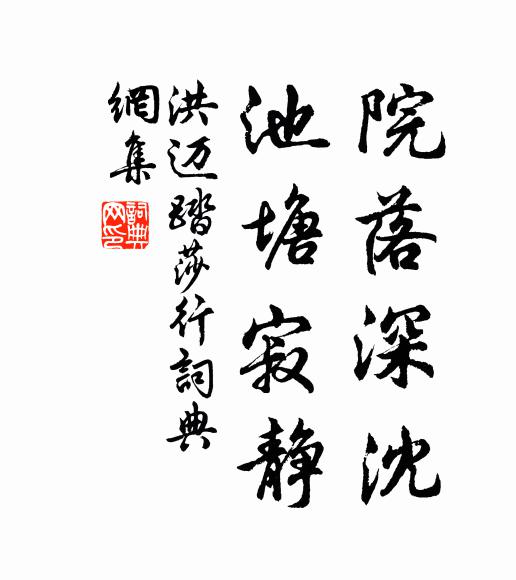 院落深沈
池塘寂静
洪迈踏莎行詞典
網集
詞典
网印